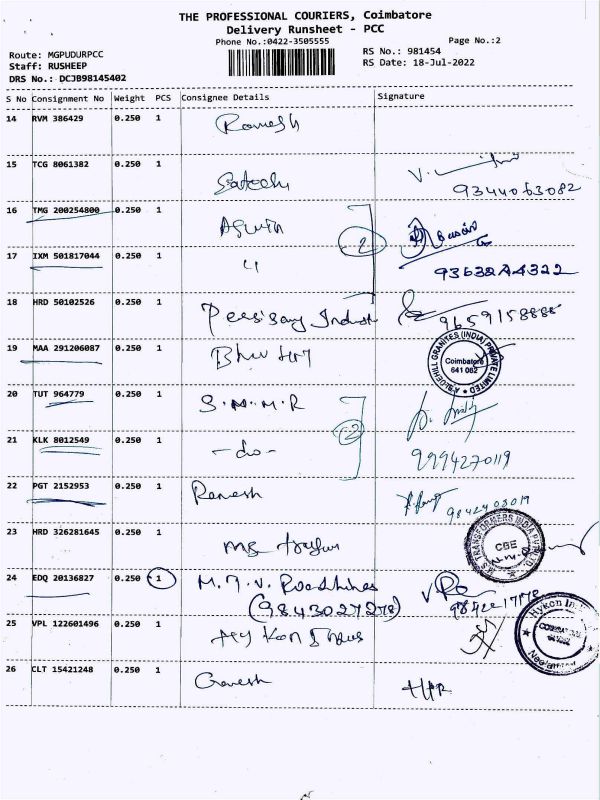 THE PROFESSIONAL COURIERS, Coimbatore
Delivery Runsheet - PCC
Phone No.:0422-3505555
Page No.:2
Route: MGPUDURPCC
RS No.: 981454
Staff: RUSHEEP
RS Date: 18-Jul-2022
DRS No.: DCJB98145402
S No Consignment No Weight PCS Consignee Details Signature
14 RVM 386429 0.250 1 Ramesh
15 TCG 8061382 0.250 1
9344063082
16 TMG 200254800 0.250 1 Aswin
2
17 IXM 501817044 0.250 1 4
18 HRD 50102526 0.250 1
19 MAA 291206087 0.250 1
BLUEHILL GRANITES (INDIA) PRIVATE LIMITED
Coimbatore
641 062
20 TUT 964779 0.250 1 S.M.M.R
2
21 KLK 8012549 0.250 1 -do-
9994270119
22 PGT 2152953 0.250 1 Ramesh
9842403019
23 HRD 326281645 0.250 1
TRANSFORMERS INDIA PVT LTD
CBE
24 EDQ 20136827 0.250 1
(9843027278)
25 VPL 122601496 0.250 1
26 CLT 15421248 0.250 1 Ganesh